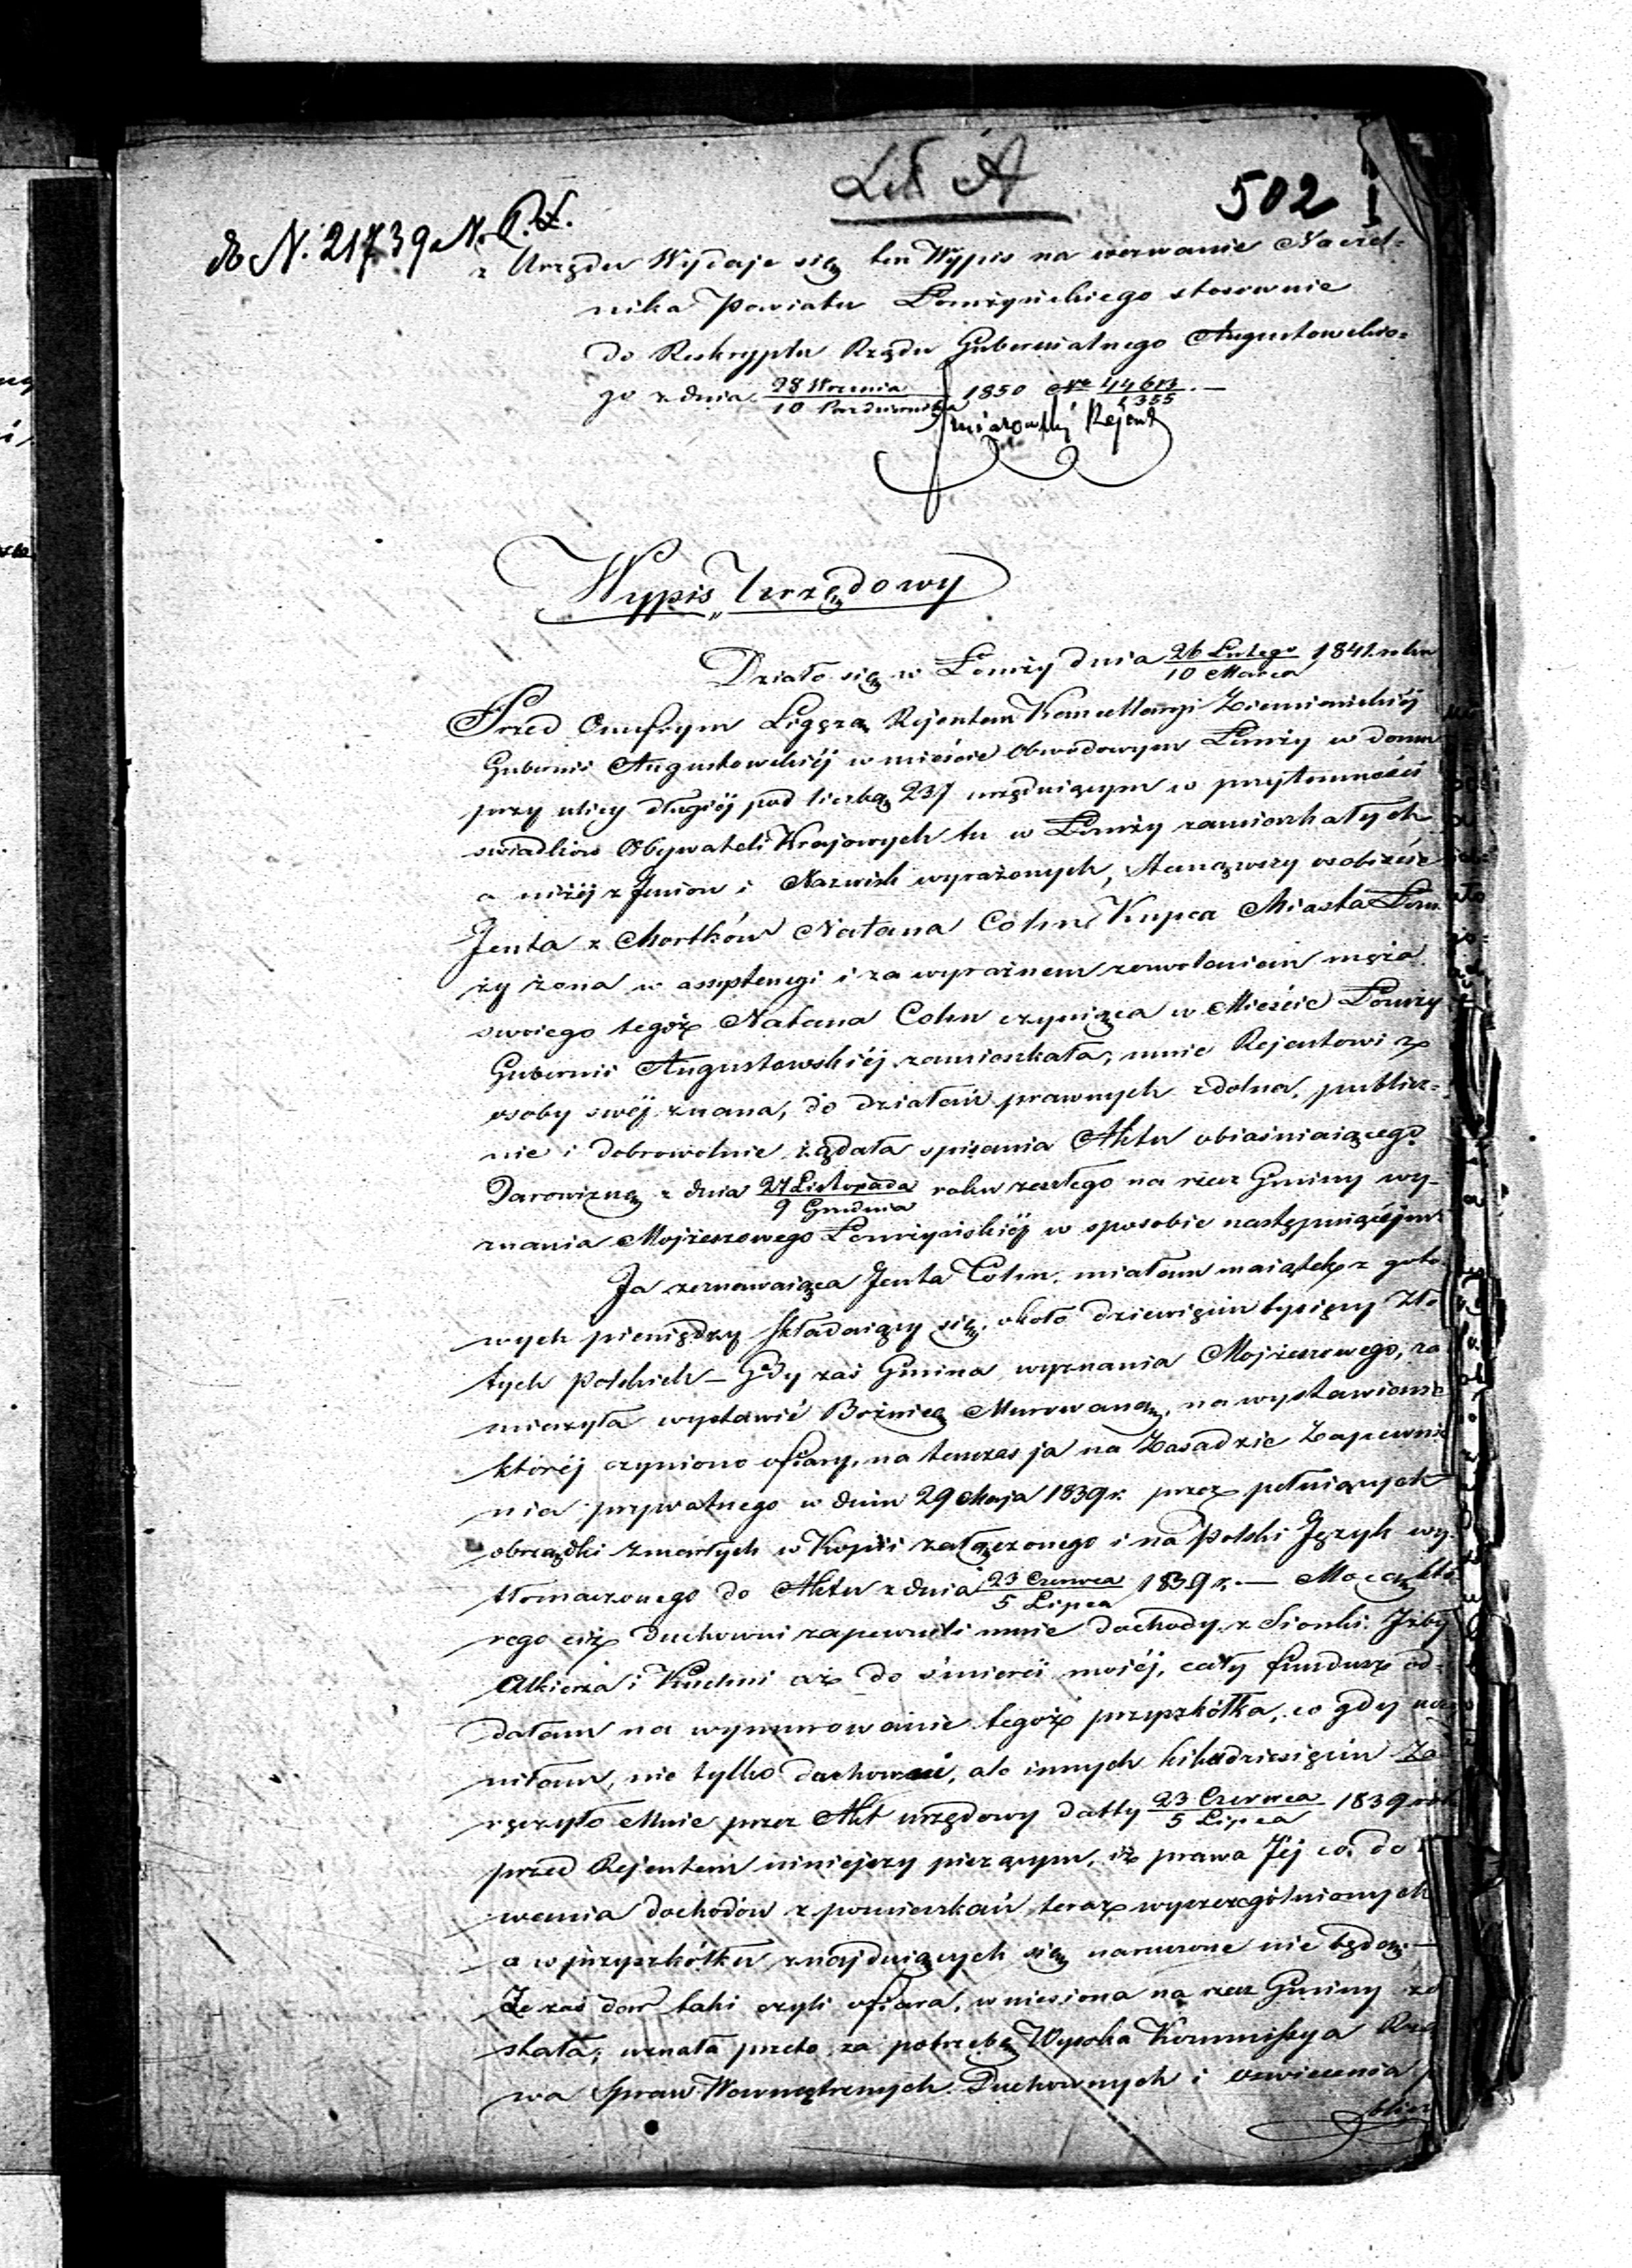 Litt A
502
do N. 21739
z Urzędu Wydaje się ten Wypis na wezwanie Naczel-
nika Powiatu Łomżyńskiego stosownie
do Reskryptu Rządu Gubernialnego Augustowskie-
go z dnia 28 Września / 10 Października 1850 Nro
Rejent
Wypis Urzędowy
Działo się w Łomży dnia 26 Lutego / 10 Marca 1841 roku
Przed Onufrym Ligęzą Rejentem Kancellaryi Ziemiańskiéj
Gubernii Augustowskiéj w mieście Obwodowym Łomży w domu
przy ulicy długiéj pod liczbą 237 urzęduiącym w przytomności
swiadków Obywateli Kraiowych tu w Łomży zamieszkałych
a niżéj z Jmion i Nazwisk wyrażonych, Stanąwszy osobiście
Jenta z Mortków Natana Cohn Kupca Miasta Łom
ży żona w assystencyi i za wyraźnem zezwoleniem męża
swoiego tegoż Natana Cohn czyniąca w Mieście Łomży
Gubernii Augustowskiéj zamieszkała, mnie Rejentowi z
osoby swéj znana, do działań prawnych zdolna, publicz-
nie i dobrowolnie żądała spisania Aktu obiaśniaiącego
Darowiznę z dnia 27 Listopada / 9 Grudnia roku zeszłego na rzecz Gminy wy-
znania Mojżeszowego Łomżyńskiéj w sposobie następuiącym
Ja zeznawaiąca Jenta Cohn, miałam maiątek z goto
wych pieniędzy składaiący się, około dziewięciu tysięcy Zło
tych Polskich – Gdy zaś Gmina wyznania Mojżeszowego, za
mierzyła wystawić Bożnicę Murowaną, na wystawienie
któréj czyniono ofiary, na tenczas ja na Zasadzie Zapewnie
nia prywatnego w dniu 29 Maja 1839 r. przez pełniących
obrządki zmarłych w Kopii załączonego i na Polski Język wy
tłomaczonego do Aktu z dnia 23 Czerwca / 5 Lipca 1839 r. — Mocą któ
rego ciż Duchowni zapewnili mnie dochody z Sionki Jzby
Alkierza i Kuchni aż do śmierci moiéj, cały fundusz od-
dałam na wymurowanie tegoż przyszkółka, co gdy uczy
niłam, nie tylko duchowni, ale innych kilkudziesięciu Za
ręczyło Mnie przez Akt urzędowy datty 23 Czerwca / 5 Lipca 1839 rok
przed Rejentem niniejszy piszącym, iż prawa Jéj co do
wania dochodów z pomieszkań teraz wyszczególnionych
a w przyszkółku znajduiących się naruszone nie będą. —
Że zaś dar taki czyli ofiara, wniesiona na rzecz Gminy zo
stała, uznała przeto za potrzebę Wysoka Kommissya Rzą
wa Spraw Wewnętrznych Duchownych i oswiecenia